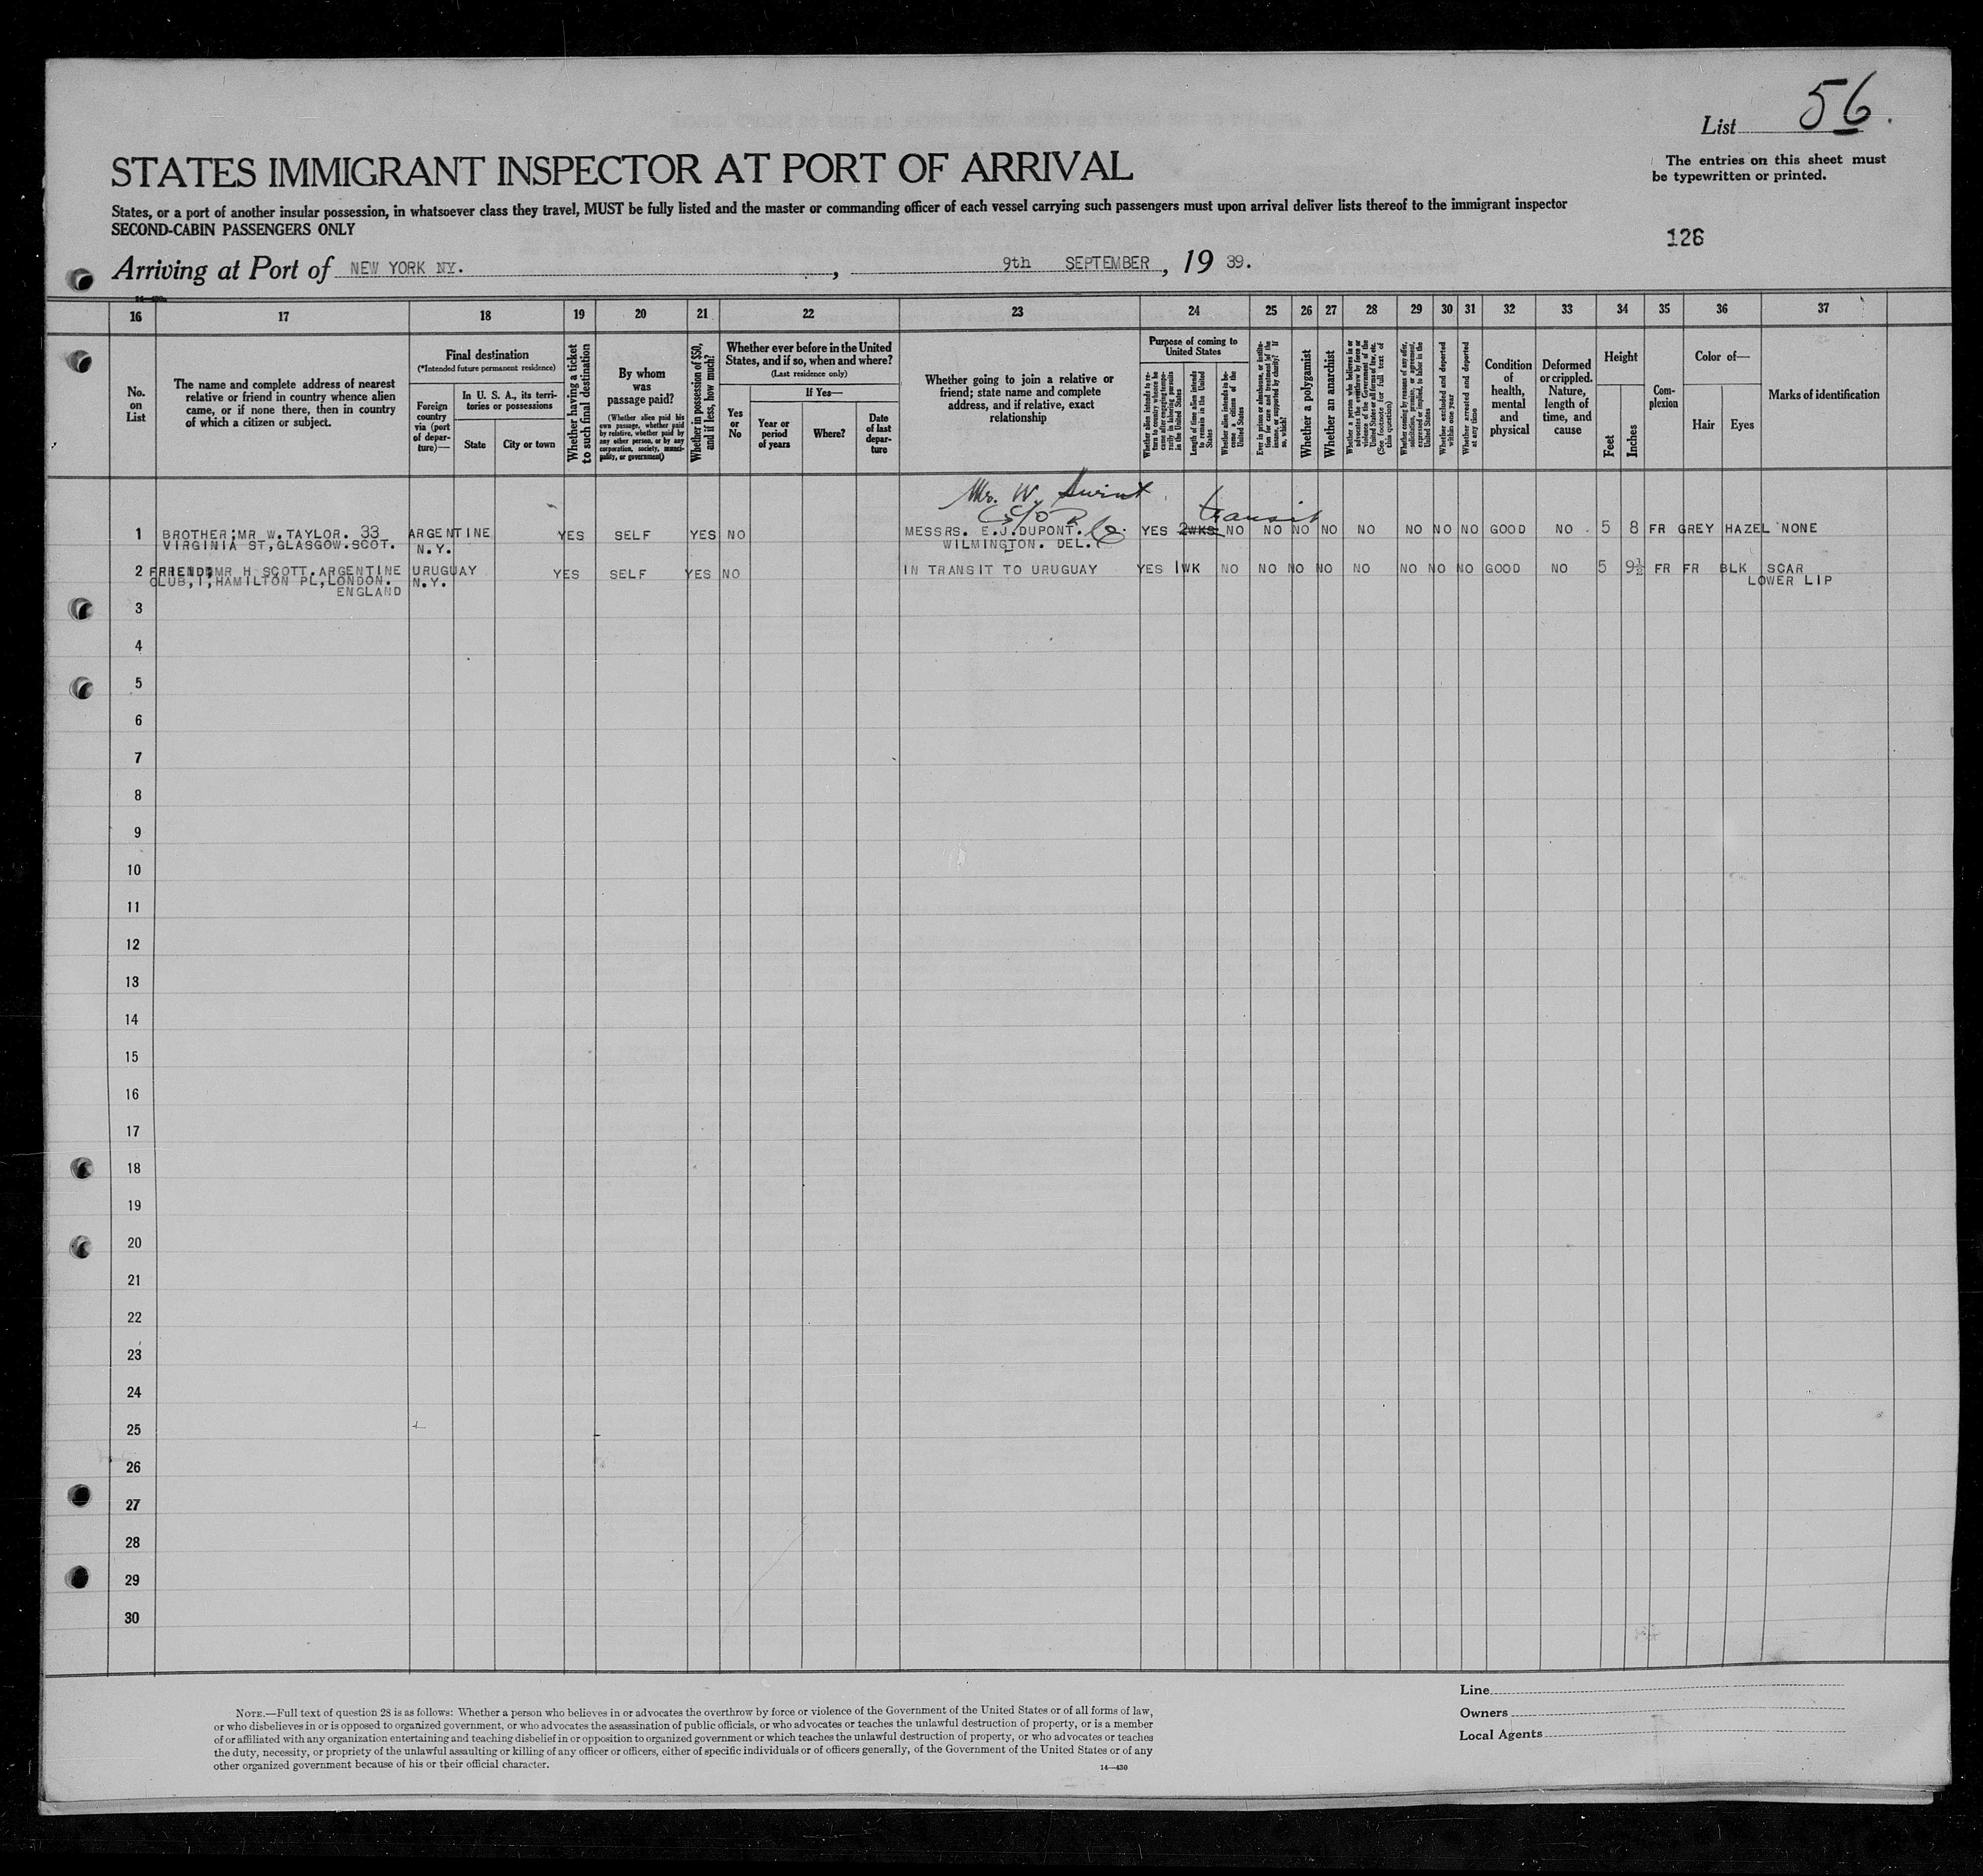 List 56.
The entries on this sheet must
be typewritten or printed.
STATES IMMIGRANT INSPECTOR AT PORT OF ARRIVAL
States, or a port of another insular possession, in whatsoever class they travel, MUST be fully listed and the master or commanding officer of each vessel carrying such passengers must upon arrival deliver lists thereof to the immigrant inspector
SECOND-CABIN PASSENGERS ONLY
126
Arriving at Port of NEW YORK NY. , 9th SEPTEMBER , 19 39.
16 17 18 19 20 21 22 23 24 25 26 27 28 29 30 31 32 33 34 35 36 37
No.
on
List
The name and complete address of nearest
relative or friend in country whence alien
came, or if none there, then in country
of which a citizen or subject.
Final destination
(*Intended future permanent residence)
Foreign
country
via (port
of depar-
ture)—
In U. S. A., its terri-
tories or possessions
State
City or town
Whether having a ticket
to such final destination
By whom
was
passage paid?
(Whether alien paid his
own passage, whether paid
by relative, whether paid by
any other person, or by any
corporation, society, munici-
pality, or government)
Whether in possession of $50,
and if less, how much?
Whether ever before in the United
States, and if so, when and where?
(Last residence only)
Yes
or
No
If Yes—
Year or
period
of years
Where?
Date
of last
depar-
ture
Whether going to join a relative or
friend; state name and complete
address, and if relative, exact
relationship
Purpose of coming to
United States
Whether alien intends to re-
turn to country whence he
came after engaging tempo-
rarily in laboring pursuits
in the United States
Length of time alien intends
to remain in the United
States
Whether alien intends to be-
come a citizen of the
United States
Ever in prison or almshouse, or institu-
tion for care and treatment of the
insane, or supported by charity? If
so, which?
Whether a polygamist
Whether an anarchist
Whether a person who believes in or
advocates the overthrow by force or
violence of the Government of the
United States or all forms of law, etc.
(See footnote for full text of
this question)
Whether coming by reason of any offer,
solicitation, promise, or agreement,
expressed or implied, to labor in the
United States
Whether excluded and deported
within one year
Whether arrested and deported
at any time
Condition
of
health,
mental
and
physical
Deformed
or crippled.
Nature,
length of
time, and
cause
Height
Feet
Inches
Com-
plexion
Color of—
Hair
Eyes
Marks of identification
Mr. W. Swint
c/o
transit
1 BROTHER;MR W.TAYLOR. 33 ARGENTINE YES SELF YES NO MESSRS. E.J.DUPONT. Co. YES 2WKS NO NO NO NO NO NO NO NO GOOD NO 5 8 FR GREY HAZEL NONE
VIRGINIA ST,GLASGOW.SCOT. N.Y. WILMINGTON. DEL.
2 FRIEND;MR H SCOTT.ARGENTINE URUGUAY YES SELF YES NO IN TRANSIT TO URUGUAY YES 1WK NO NO NO NO NO NO NO NO GOOD NO 5 9½ FR FR BLK SCAR
CLUB,1,HAMILTON PL,LONDON. N.Y. LOWER LIP
ENGLAND
3
4
5
6
7
8
9
10
11
12
13
14
15
16
17
18
19
20
21
22
23
24
25
26
27
28
29
30
NOTE.—Full text of question 28 is as follows: Whether a person who believes in or advocates the overthrow by force or violence of the Government of the United States or of all forms of law,
or who disbelieves in or is opposed to organized government, or who advocates the assassination of public officials, or who advocates or teaches the unlawful destruction of property, or is a member
of or affiliated with any organization entertaining and teaching disbelief in or opposition to organized government or which teaches the unlawful destruction of property, or who advocates or teaches
the duty, necessity, or propriety of the unlawful assaulting or killing of any officer or officers, either of specific individuals or of officers generally, of the Government of the United States or of any
other organized government because of his or their official character.
14—430
Line
Owners
Local Agents